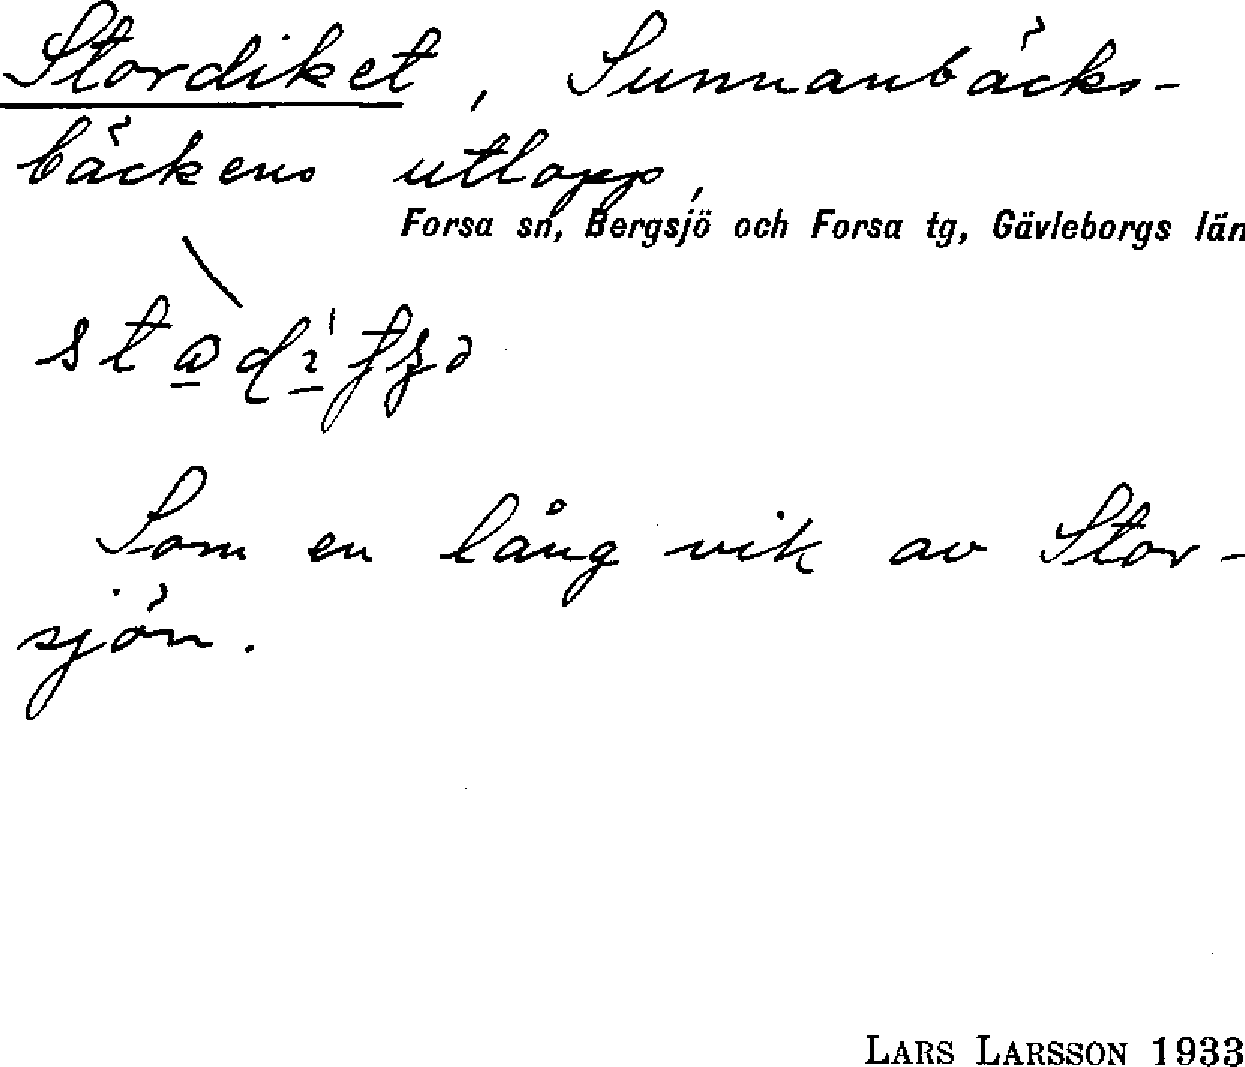 Stordiket, Sunnanbäcks-
bäckens utlopp,
Forsa sn, Bergsjö och Forsa tg, Gävleborgs län
Som en lång vik av Stor-
sjön.
LARS LARSSON 1933